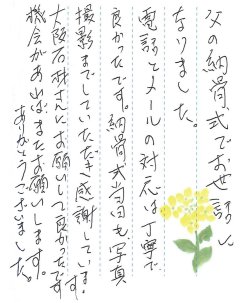 父の納骨式でお世話に
なりました。
電話とメールの対応は丁寧で
良かったです。納骨式当日も、写真
撮影までしていただき感謝しています。
大阪石材さんにお願いして良かったです
機会があれば、またお願いします。
ありがとうございました。